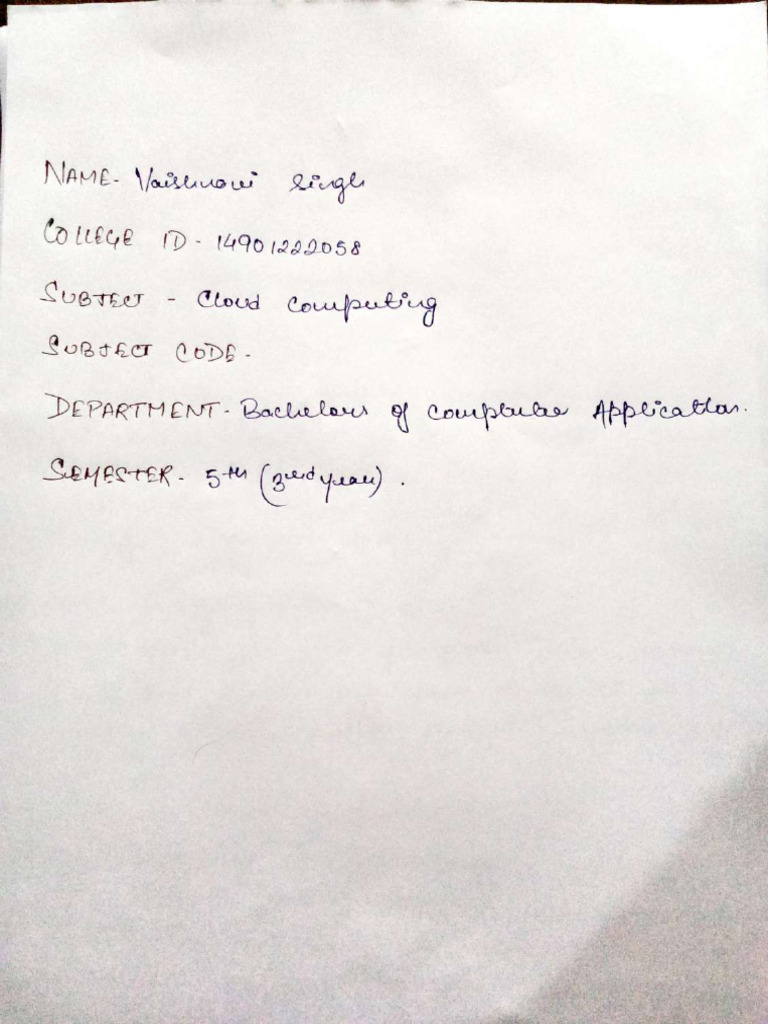 NAME- Vaishnavi Singh
COLLEGE ID- 14901222058
SUBJECT - Cloud Computing
SUBJECT CODE-
DEPARTMENT- Bachelors of Computer Application.
SEMESTER- 5th (3rd year).